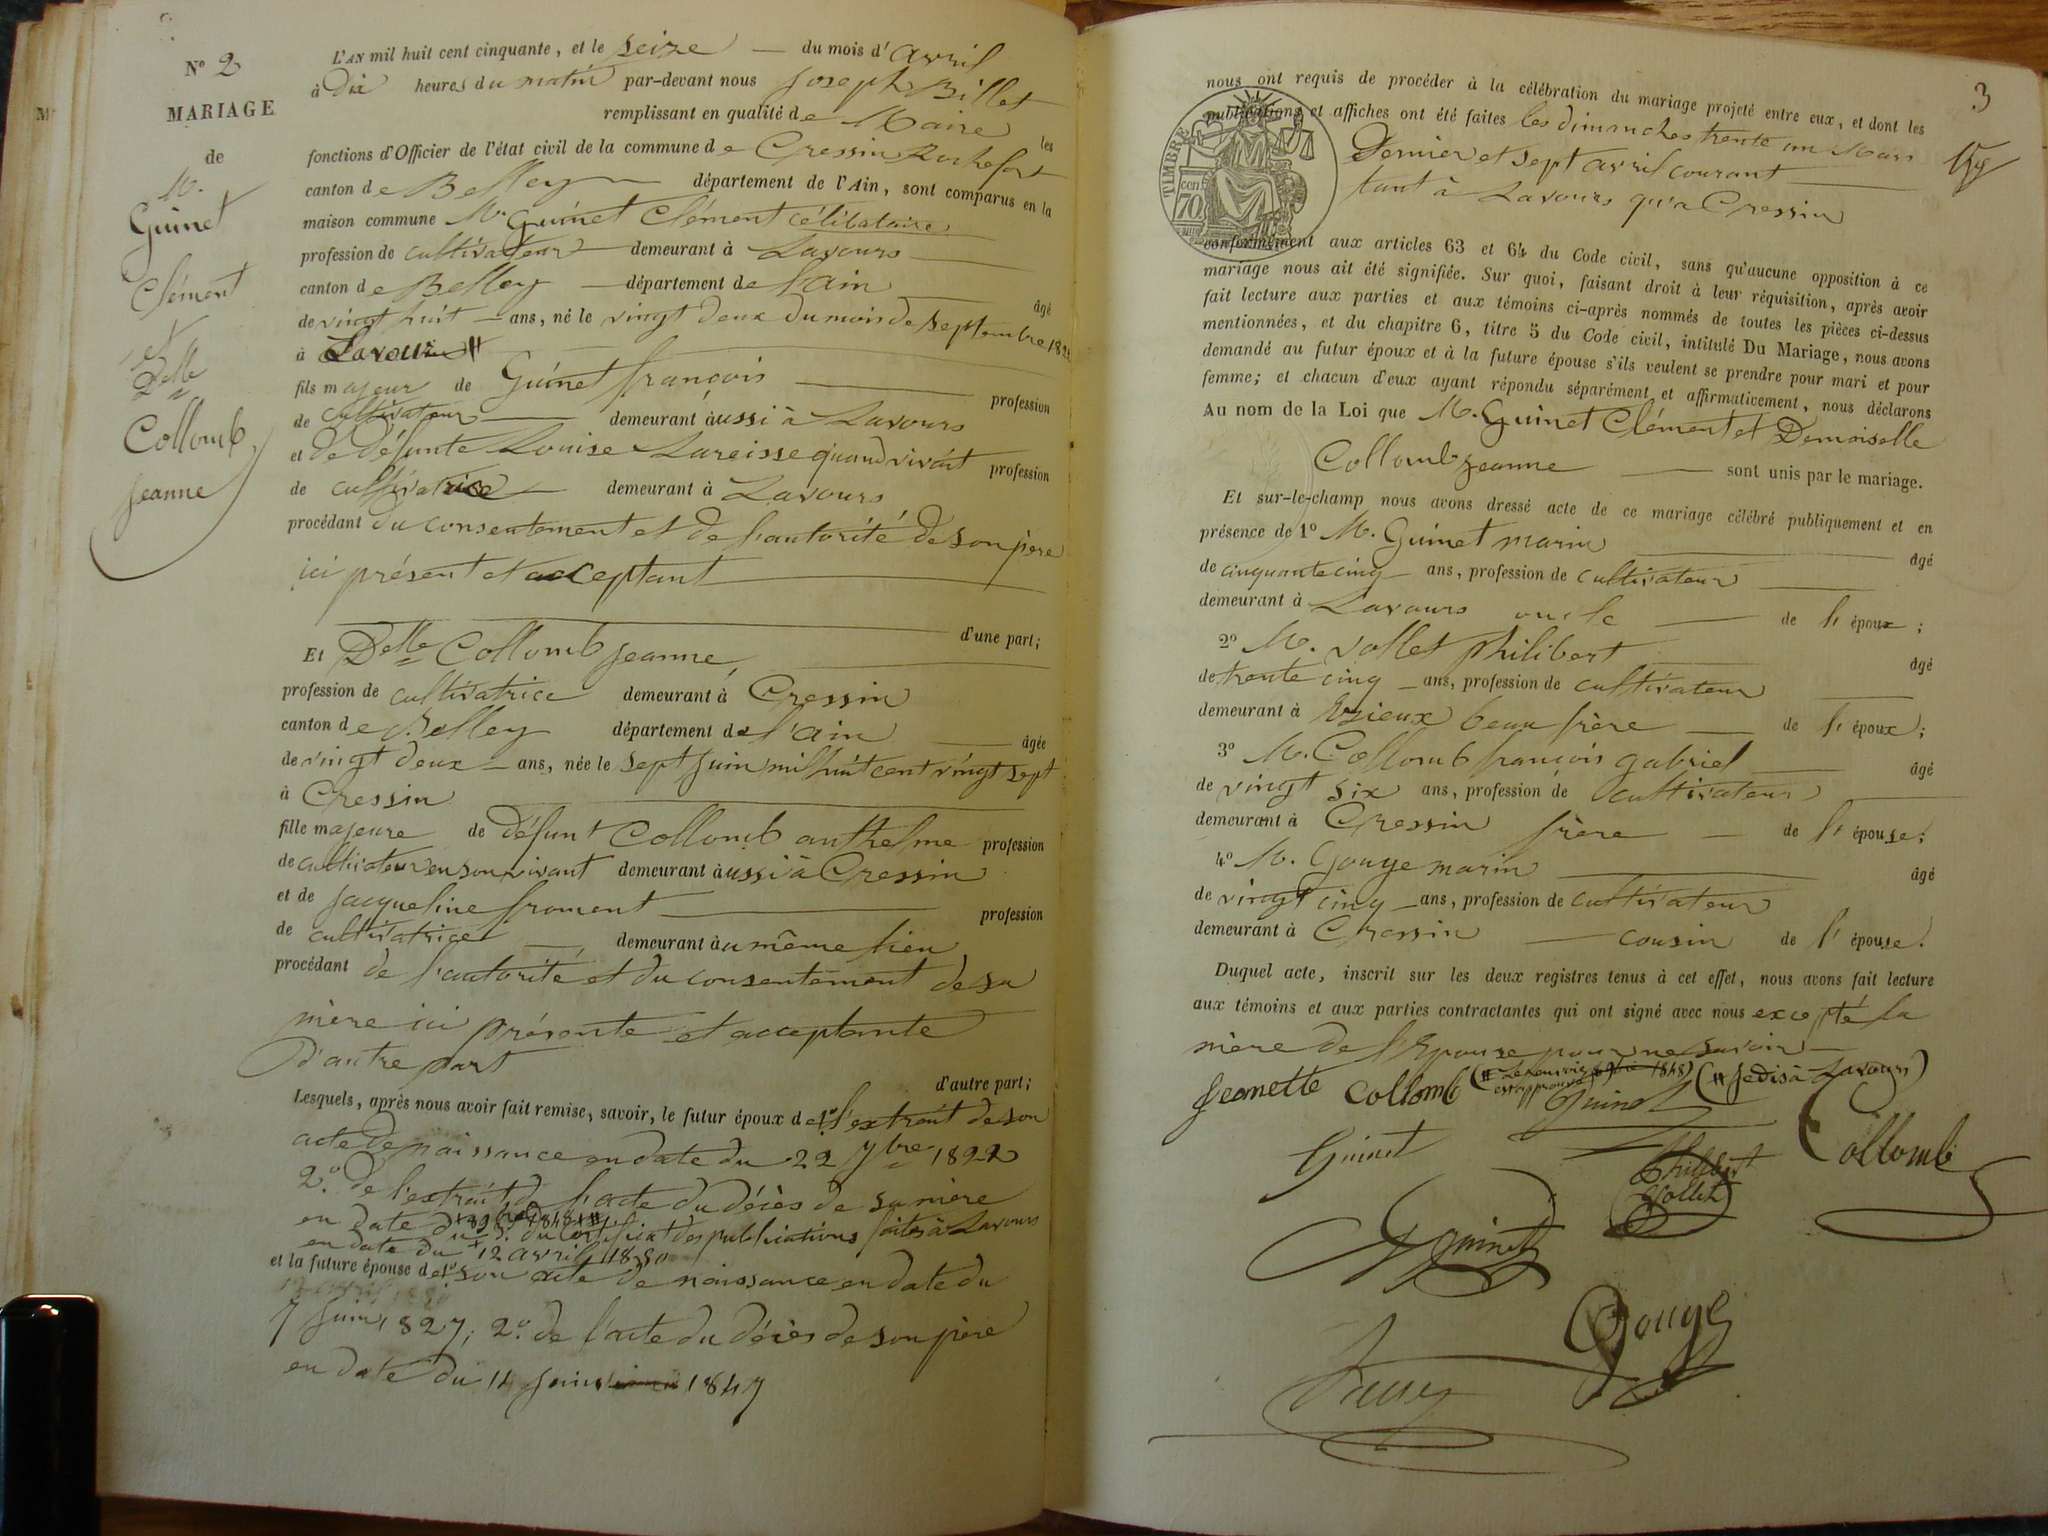 N° 2
MARIAGE
de
M.
Guinet
Clément
et
Delle
Collomb
Jeanne
L'AN mil huit cent cinquante, et le seize — du mois d'avril
à dix heures du matin par-devant nous Joseph Billet
remplissant en qualité de Maire les
fonctions d'Officier de l'état civil de la commune de Cressin Rochefort
canton de Belley — département de l'Ain, sont comparus en la
maison commune Mr Guinet Clément célibataire
profession de cultivateur — demeurant à Lavours
canton de Belley — département de l'ain âgé
de vingt huit — ans, né le vingt deux du mois de septembre
à Lavours #
fils majeur de Guinet françois — profession
de cultivateur — demeurant àussi à Lavours
et de défunte Louise Lareisse quand vivait profession
de cultivatrice — demeurant à Lavours
procédant du consentement et de l'autorité de son père
ici présent et acceptant
d'une part;
Et Delle Collomb Jeanne
profession de cultivatrice demeurant à Cressin
canton de Belley département de l'ain — âgée
de vingt deux — ans, née le sept Juin mil huit cent vingt sept
à Cressin
fille majeure de défunt Collomb anthelme profession
de cultivateur en son vivant demeurant àussi à Cressin
et de Jacqueline froment — profession
de cultivatrice — demeurant àu même lieu
procédant de l'autorité et du consentement de sa
mère ici présente et acceptante
d'autre part
d'autre part;
Lesquels, après nous avoir fait remise, savoir, le futur époux de 1° l'extrait de son
acte de naissance en date du 22 7bre 1822
2° de l'extrait de l'acte du décès de sa mère
en date du 1848 # du certificat des publications faites à Lavours
en date du 12 avril 1850
et la future épouse de 1° son acte de naissance en date du
7 Juin 1827, 2° de l'acte du décès de son père
en date du 14 Juin 1847
3
nous ont requis de procéder à la célébration du mariage projeté entre eux, et dont les
publications et affiches ont été faites les dimanches trente un Mars
TIMBRE
cen. 70
Dernier et sept avril courant
tant à Lavours qu'a Cressin
conformément aux articles 63 et 64 du Code civil, sans qu'aucune opposition à ce
mariage nous ait été signifiée. Sur quoi, faisant droit à leur réquisition, après avoir
fait lecture aux parties et aux témoins ci-après nommés de toutes les pièces ci-dessus
mentionnées, et du chapitre 6, titre 5 du Code civil, intitulé Du Mariage, nous avons
demandé au futur époux et à la future épouse s'ils veulent se prendre pour mari et pour
femme; et chacun d'eux ayant répondu séparément et affirmativement, nous déclarons
Au nom de la Loi que M. Guinet Clément et Demoiselle
Collomb Jeanne — sont unis par le mariage.
Et sur-le-champ nous avons dressé acte de ce mariage célébré publiquement et en
présence de 1° M. Guinet marin âgé
de cinquante cinq ans, profession de cultivateur
demeurant à Lavours oncle — de l' époux;
2° M. Vollet Philibert âgé
de trente cinq — ans, profession de cultivateur
demeurant à beau frère — de l' époux;
3° M. Collomb françois gabriel âgé
de vingt six ans, profession de cultivateur
demeurant à Cressin frère — de l' épouse;
4° M. Gouge marin âgé
de vingt cinq — ans, profession de cultivateur
demeurant à Cressin — cousin de l' épouse.
Duquel acte, inscrit sur les deux registres tenus à cet effet, nous avons fait lecture
aux témoins et aux parties contractantes qui ont signé avec nous excepté la
mère de l'Epouse pour ne savoir
Jeanette Collomb (# 1848) (# Je dis à Lavours)
Guinet
Guinet
Collomb
Philibert
Vollet
Guinet
Gouge